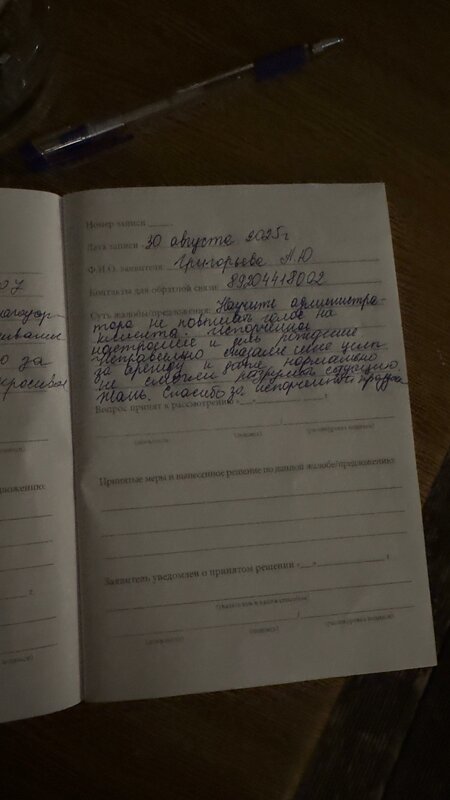 Номер записи
Дата записи 30 августа 2025 г
Ф.И.О. заявителя: Григорьева А.Ю
Контакты для обратной связи: 89204418002
Суть жалобы/предложения: Научите администра-
тора не повышать голос на
клиента. испорченное
настроение и день рождение
неправильно сказали цену
за аренду и даже нормально
не смогли ситуацию.
жаль. Спасибо за испорченный
Вопрос принят к рассмотрению «__» г
/
(должность) (подпись) (расшифровка подписи)
Принятые меры и вынесенное решение по данной жалобе/предложению:
Заявитель уведомлен о принятом решении «__» г
(указать как и каким способом)
/
(должность) (подпись) (расшифровка подписи)
за